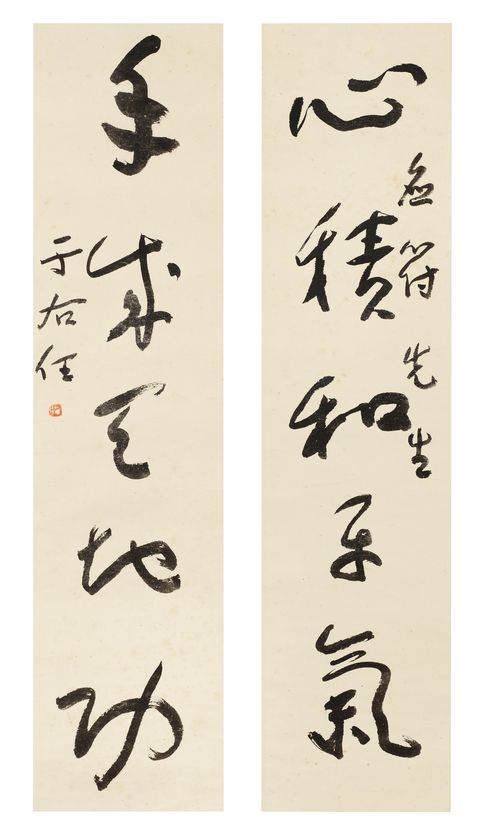 心積和平氣
符先生
手成天地功
于右任